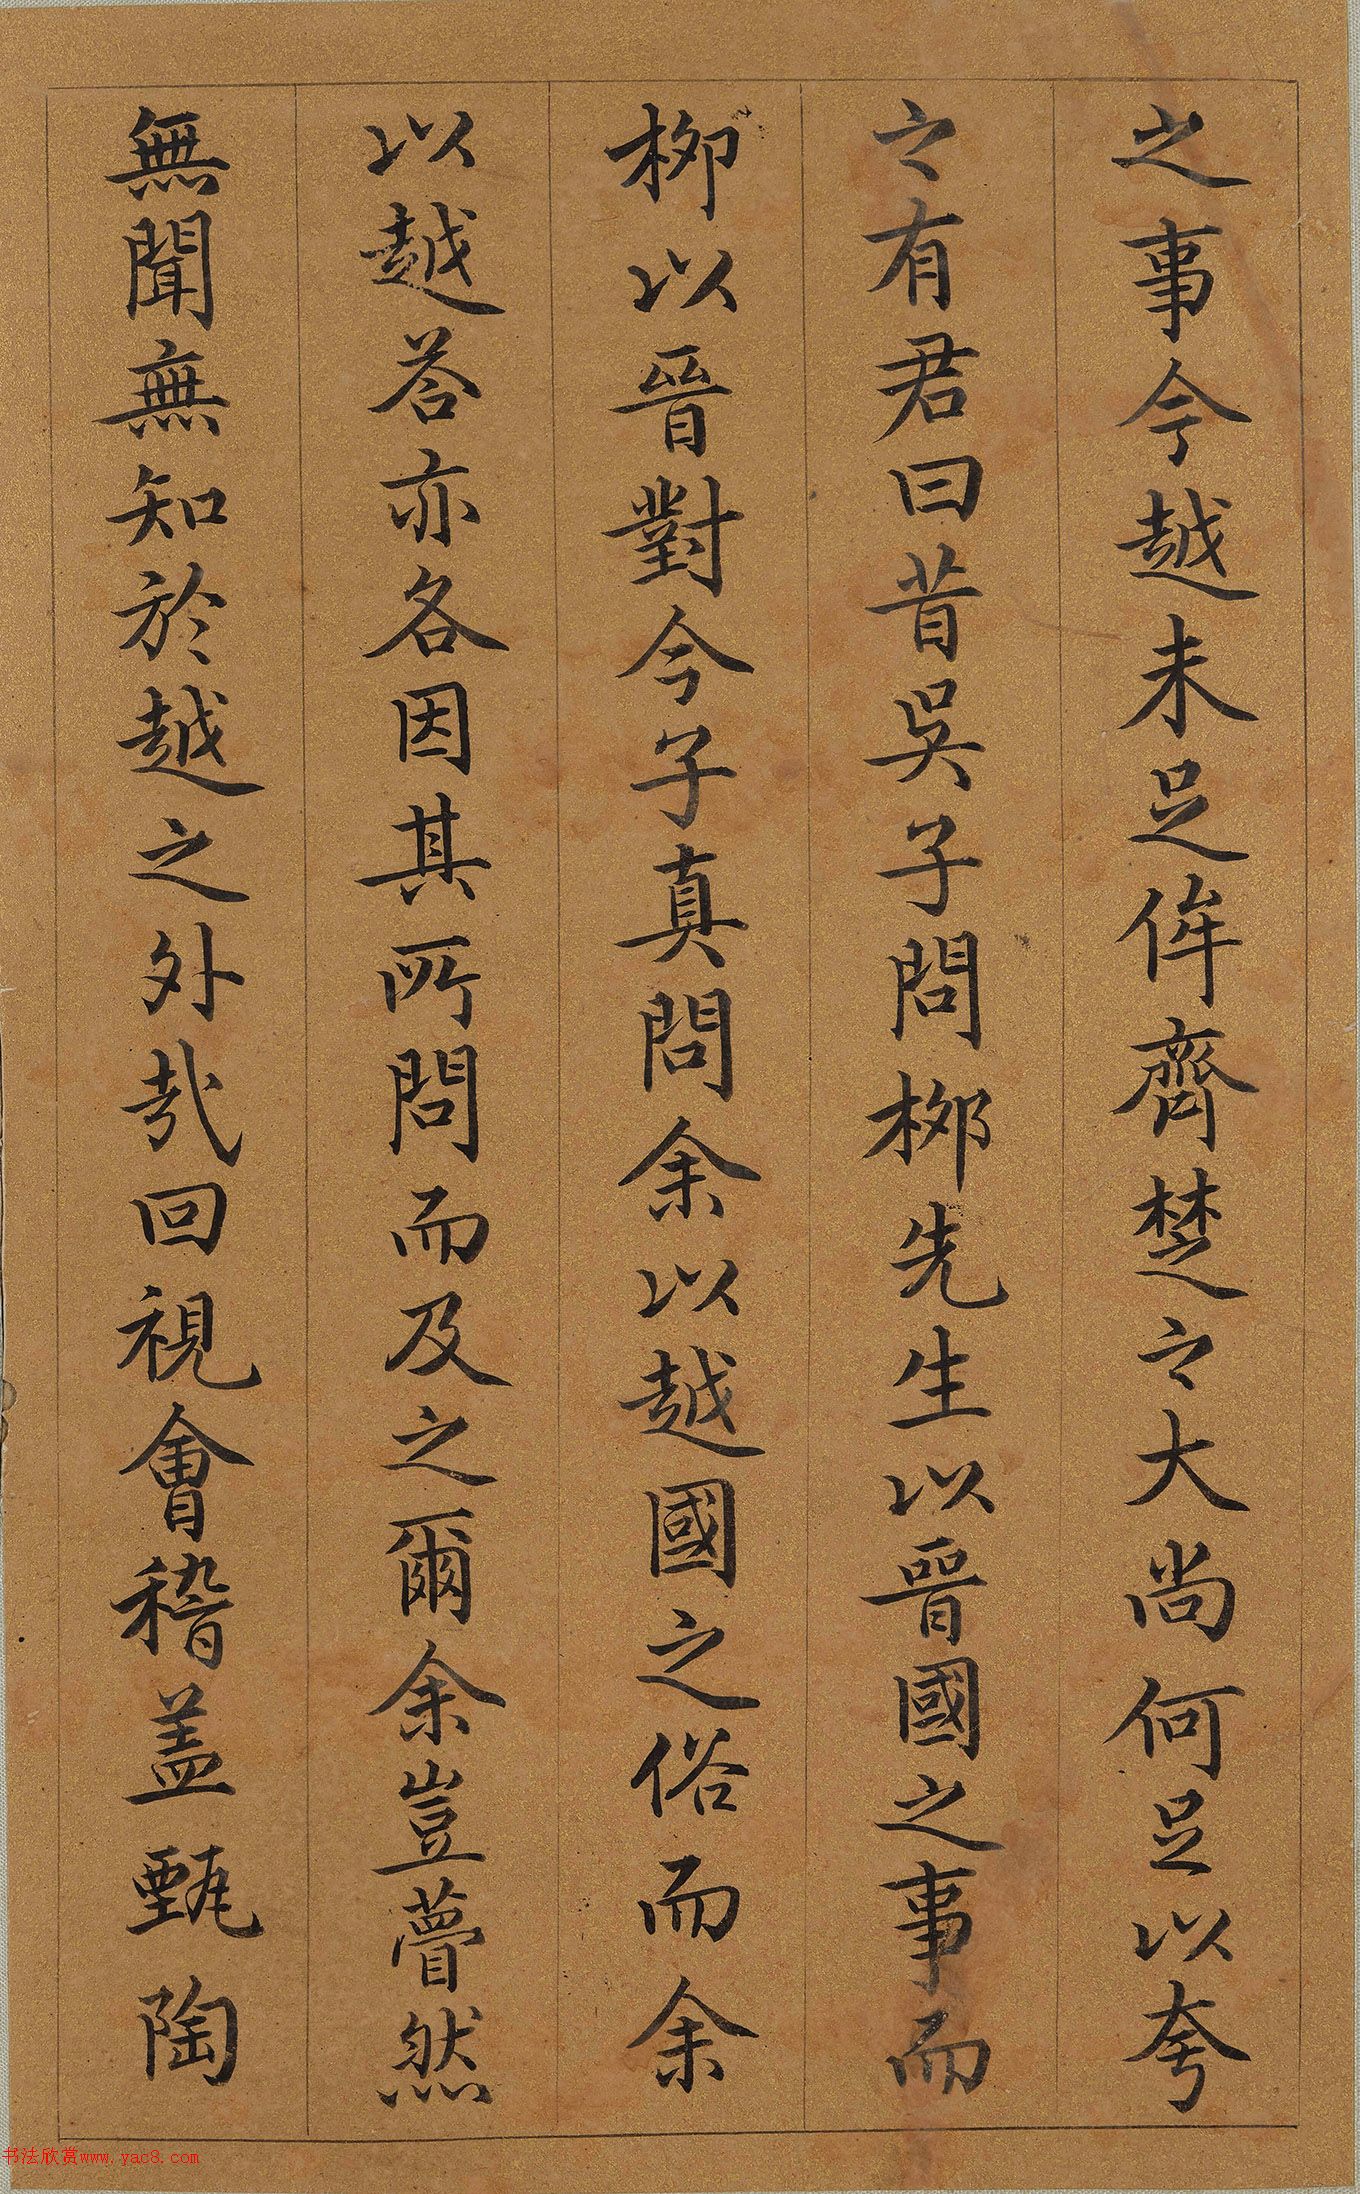 之事今越未足侔齊楚之大尚何足以夸
之有君曰昔吳子問柳先生以晉國之事而
柳以晉對今子真問余以越國之俗而余
以越荅亦各因其所問而及之爾余豈瞢然
無聞無知於越之外哉回視會稽蓋甄陶
书法欣赏www.yac8.com